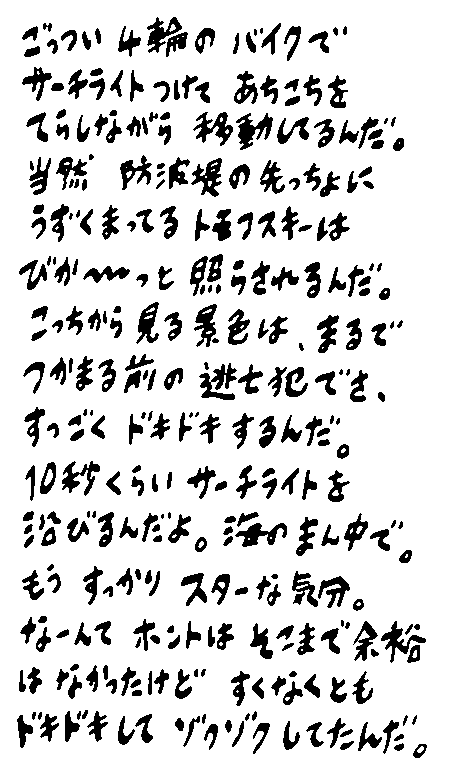 ごっつい 4輪の バイクで
サーチライトつけて あちこちを
てらしながら 移動してるんだ。
当然 防波堤の先っちょに
うずくまってるトモフスキーは
びか〜っと 照らされるんだ。
こっちから 見る景色は、まるで
つかまる前の 逃亡犯でさ、
すっごく ドキドキするんだ。
10秒くらい サーチライトを
浴びるんだよ。海のまん中で。
もう すっかり スターな気分。
なーんて ホントは そこまで余裕
は なかったけど すくなくとも
ドキドキして ゾクゾクしてたんだ。